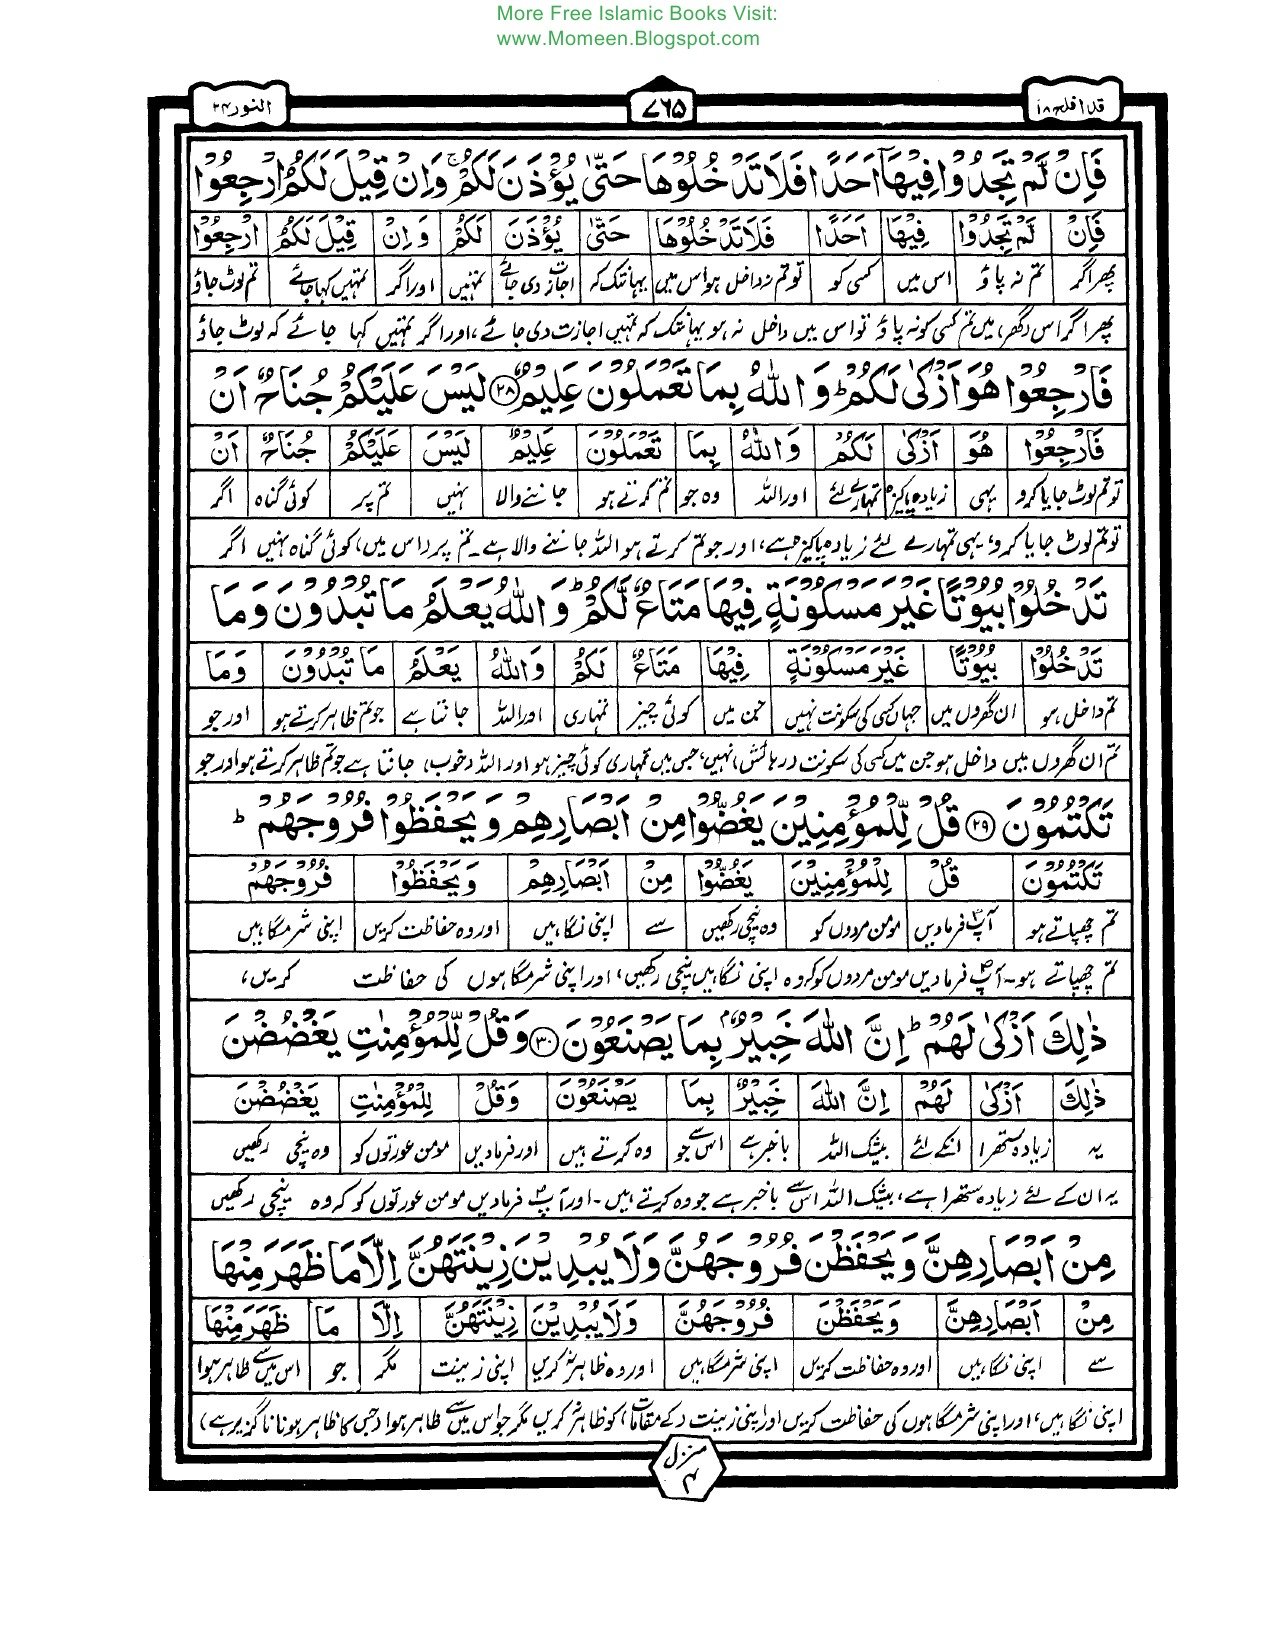 More Free Islamic Books Visit:
www.Momeen.Blogspot.com
قد افلح ۱۸
۷۶۵
النور ۲۴
فَاِنْ لَّمْ تَجِدُوْا فِيْهَاۤ اَحَدًا فَلَا تَدْخُلُوْهَا حَتّٰى يُؤْذَنَ لَكُمْ ۚ وَاِنْ قِيْلَ لَكُمُ ارْجِعُوْا
فَاِنْ لَّمْ تَجِدُوْا فِيْهَاۤ اَحَدًا فَلَا تَدْخُلُوْهَا حَتّٰى يُؤْذَنَ لَكُمْ وَاِنْ قِيْلَ لَكُمُ ارْجِعُوْا
پھر اگر تم نہ پاؤ اس میں کسی کو تو تم نہ داخل ہو اس میں یہانتک کہ اجازت دی جائے تمہیں اور اگر تمہیں کہا جائے تم لوٹ جاؤ
پھر اگر اس (گھر) میں تم کسی کو نہ پاؤ تو اس میں داخل نہ ہو یہانتک کہ تمہیں اجازت دی جائے، اور اگر تمہیں کہا جائے کہ لوٹ جاؤ
فَارْجِعُوْا هُوَ اَزْكٰى لَكُمْ ؕ وَاللّٰهُ بِمَا تَعْمَلُوْنَ عَلِيْمٌ ۲۸ لَيْسَ عَلَيْكُمْ جُنَاحٌ اَنْ
فَارْجِعُوْا هُوَ اَزْكٰى لَكُمْ وَاللّٰهُ بِمَا تَعْمَلُوْنَ عَلِيْمٌ لَيْسَ عَلَيْكُمْ جُنَاحٌ اَنْ
تو تم لوٹ جایا کرو یہی زیادہ پاکیزہ تمہارے لئے اور اللہ وہ جو تم کرتے ہو جاننے والا نہیں تم پر کوئی گناہ اگر
تو تم لوٹ جایا کرو، یہی تمہارے لئے زیادہ پاکیزہ ہے، اور جو تم کرتے ہو اللہ جاننے والا ہے۔ تم پر (اس میں) کوئی گناہ نہیں اگر
تَدْخُلُوْا بُيُوْتًا غَيْرَ مَسْكُوْنَةٍ فِيْهَا مَتَاعٌ لَّكُمْ ؕ وَاللّٰهُ يَعْلَمُ مَا تُبْدُوْنَ وَمَا
تَدْخُلُوْا بُيُوْتًا غَيْرَ مَسْكُوْنَةٍ فِيْهَا مَتَاعٌ لَكُمْ وَاللّٰهُ يَعْلَمُ مَا تُبْدُوْنَ وَمَا
تم داخل ہو ان گھروں میں جہاں کسی کی سکونت نہیں جن میں کوئی چیز تمہاری اور اللہ جانتا ہے جو تم ظاہر کرتے ہو اور جو
تم ان گھروں میں داخل ہو جن میں کسی کی سکونت (رہائش) نہیں، جس میں تمہاری کوئی چیز ہو اور اللہ (خوب) جانتا ہے جو تم ظاہر کرتے ہو اور جو
تَكْتُمُوْنَ ۲۹ قُلْ لِّلْمُؤْمِنِيْنَ يَغُضُّوْا مِنْ اَبْصَارِهِمْ وَيَحْفَظُوْا فُرُوْجَهُمْ ؕ
تَكْتُمُوْنَ قُلْ لِلْمُؤْمِنِيْنَ يَغُضُّوْا مِنْ اَبْصَارِهِمْ وَيَحْفَظُوْا فُرُوْجَهُمْ
تم چھپاتے ہو آپؐ فرمادیں مومن مردوں کو وہ نیچی رکھیں سے اپنی نگاہیں اور وہ حفاظت کریں اپنی شرمگاہیں
تم چھپاتے ہو۔ آپؐ فرمادیں مومن مردوں کو کہ وہ اپنی نگاہیں نیچی رکھیں، اور اپنی شرمگاہوں کی حفاظت کریں،
ذٰلِكَ اَزْكٰى لَهُمْ ؕ اِنَّ اللّٰهَ خَبِيْرٌۢ بِمَا يَصْنَعُوْنَ ۳۰ وَقُلْ لِّلْمُؤْمِنٰتِ يَغْضُضْنَ
ذٰلِكَ اَزْكٰى لَهُمْ اِنَّ اللّٰهَ خَبِيْرٌ بِمَا يَصْنَعُوْنَ وَقُلْ لِلْمُؤْمِنٰتِ يَغْضُضْنَ
یہ زیادہ ستھرا انکے لئے بیشک اللہ باخبر ہے اس سے جو وہ کرتے ہیں اور فرمادیں مومن عورتوں کو وہ نیچی رکھیں
یہ ان کے لئے زیادہ ستھرا ہے، بیشک اللہ اس سے باخبر ہے جو وہ کرتے ہیں۔ اور آپؐ فرمادیں مومن عورتوں کو کہ وہ نیچی رکھیں
مِنْ اَبْصَارِهِنَّ وَيَحْفَظْنَ فُرُوْجَهُنَّ وَلَا يُبْدِيْنَ زِيْنَتَهُنَّ اِلَّا مَا ظَهَرَ مِنْهَا
مِنْ اَبْصَارِهِنَّ وَيَحْفَظْنَ فُرُوْجَهُنَّ وَلَا يُبْدِيْنَ زِيْنَتَهُنَّ اِلَّا مَا ظَهَرَ مِنْهَا
سے اپنی نگاہیں اور وہ حفاظت کریں اپنی شرمگاہیں اور وہ ظاہر نہ کریں اپنی زینت مگر جو اس میں سے ظاہر ہوا
اپنی نگاہیں، اور اپنی شرمگاہوں کی حفاظت کریں اور اپنی زینت (کے مقامات) کو ظاہر نہ کریں مگر جو اس میں سے ظاہر ہوا (جس کا ظاہر ہونا ناگزیر ہے)
منزل ۴